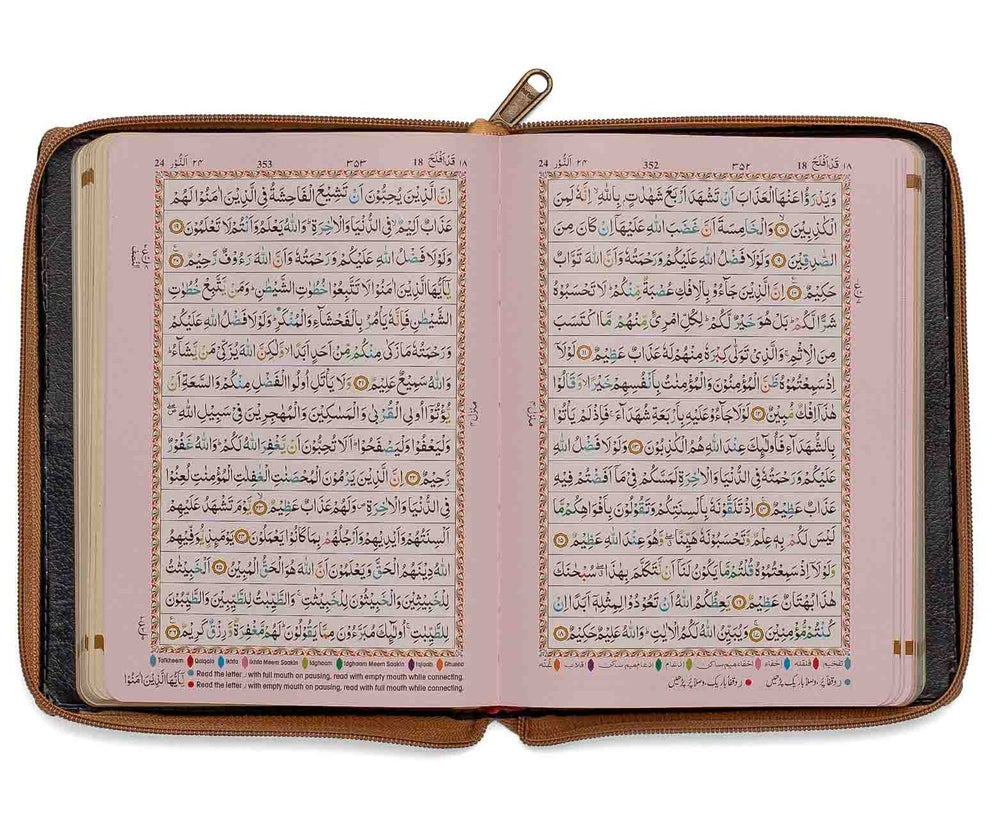 24 اَلنُّوْر ٢٤ 352 ٣٥٢ 18 قَدْ اَفْلَحَ ١٨
وَيَدْرَؤُا عَنْهَا الْعَذَابَ اَنْ تَشْهَدَ اَرْبَعَ شَهٰدٰتٍۭ بِاللّٰهِ ۙ اِنَّهٗ لَمِنَ
الْكٰذِبِيْنَ ۙ٨ وَالْخَامِسَةَ اَنَّ غَضَبَ اللّٰهِ عَلَيْهَاۤ اِنْ كَانَ مِنَ
الصّٰدِقِيْنَ ٩ وَلَوْلَا فَضْلُ اللّٰهِ عَلَيْكُمْ وَرَحْمَتُهٗ وَاَنَّ اللّٰهَ تَوَّابٌ
حَكِيْمٌ ١٠ اِنَّ الَّذِيْنَ جَآءُوْ بِالْاِفْكِ عُصْبَةٌ مِّنْكُمْ ؕ لَا تَحْسَبُوْهُ
شَرًّا لَّكُمْ ؕ بَلْ هُوَ خَيْرٌ لَّكُمْ ؕ لِكُلِّ امْرِئٍ مِّنْهُمْ مَّا اكْتَسَبَ
مِنَ الْاِثْمِ ۚ وَالَّذِيْ تَوَلّٰى كِبْرَهٗ مِنْهُمْ لَهٗ عَذَابٌ عَظِيْمٌ ١١ لَوْلَاۤ
اِذْ سَمِعْتُمُوْهُ ظَنَّ الْمُؤْمِنُوْنَ وَالْمُؤْمِنٰتُ بِاَنْفُسِهِمْ خَيْرًا ۙ وَّقَالُوْا
هٰذَاۤ اِفْكٌ مُّبِيْنٌ ١٢ لَوْلَا جَآءُوْ عَلَيْهِ بِاَرْبَعَةِ شُهَدَآءَ ۚ فَاِذْ لَمْ يَاْتُوْا
بِالشُّهَدَآءِ فَاُولٰٓئِكَ عِنْدَ اللّٰهِ هُمُ الْكٰذِبُوْنَ ١٣ وَلَوْلَا فَضْلُ اللّٰهِ
عَلَيْكُمْ وَرَحْمَتُهٗ فِي الدُّنْيَا وَالْاٰخِرَةِ لَمَسَّكُمْ فِيْ مَاۤ اَفَضْتُمْ فِيْهِ
عَذَابٌ عَظِيْمٌ ١٤ اِذْ تَلَقَّوْنَهٗ بِاَلْسِنَتِكُمْ وَتَقُوْلُوْنَ بِاَفْوَاهِكُمْ مَّا
لَيْسَ لَكُمْ بِهٖ عِلْمٌ وَّتَحْسَبُوْنَهٗ هَيِّنًا ۖ وَّهُوَ عِنْدَ اللّٰهِ عَظِيْمٌ ١٥
وَلَوْلَاۤ اِذْ سَمِعْتُمُوْهُ قُلْتُمْ مَّا يَكُوْنُ لَنَاۤ اَنْ نَّتَكَلَّمَ بِهٰذَا ۖ سُبْحٰنَكَ
هٰذَا بُهْتَانٌ عَظِيْمٌ ١٦ يَعِظُكُمُ اللّٰهُ اَنْ تَعُوْدُوْا لِمِثْلِهٖۤ اَبَدًا اِنْ
كُنْتُمْ مُّؤْمِنِيْنَ ١٧ وَيُبَيِّنُ اللّٰهُ لَكُمُ الْاٰيٰتِ ؕ وَاللّٰهُ عَلِيْمٌ حَكِيْمٌ ١٨
تفخیم قلقلہ اخفاء اخفاء میم ساکن ادغام ادغام میم ساکن اقلاب غنّہ
24 اَلنُّوْر ٢٤ 353 ٣٥٣ 18 قَدْ اَفْلَحَ ١٨
اِنَّ الَّذِيْنَ يُحِبُّوْنَ اَنْ تَشِيْعَ الْفَاحِشَةُ فِي الَّذِيْنَ اٰمَنُوْا لَهُمْ
عَذَابٌ اَلِيْمٌ ۙ فِي الدُّنْيَا وَالْاٰخِرَةِ ؕ وَاللّٰهُ يَعْلَمُ وَاَنْتُمْ لَا تَعْلَمُوْنَ ١٩
وَلَوْلَا فَضْلُ اللّٰهِ عَلَيْكُمْ وَرَحْمَتُهٗ وَاَنَّ اللّٰهَ رَءُوْفٌ رَّحِيْمٌ ٢٠
يٰۤاَيُّهَا الَّذِيْنَ اٰمَنُوْا لَا تَتَّبِعُوْا خُطُوٰتِ الشَّيْطٰنِ ؕ وَمَنْ يَّتَّبِعْ خُطُوٰتِ
الشَّيْطٰنِ فَاِنَّهٗ يَاْمُرُ بِالْفَحْشَآءِ وَالْمُنْكَرِ ؕ وَلَوْلَا فَضْلُ اللّٰهِ عَلَيْكُمْ
وَرَحْمَتُهٗ مَا زَكٰى مِنْكُمْ مِّنْ اَحَدٍ اَبَدًا ۙ وَّلٰكِنَّ اللّٰهَ يُزَكِّيْ مَنْ يَّشَآءُ ؕ
وَاللّٰهُ سَمِيْعٌ عَلِيْمٌ ٢١ وَلَا يَاْتَلِ اُولُوا الْفَضْلِ مِنْكُمْ وَالسَّعَةِ اَنْ
يُّؤْتُوْۤا اُولِي الْقُرْبٰى وَالْمَسٰكِيْنَ وَالْمُهٰجِرِيْنَ فِيْ سَبِيْلِ اللّٰهِ ۖ
وَلْيَعْفُوْا وَلْيَصْفَحُوْا ؕ اَلَا تُحِبُّوْنَ اَنْ يَّغْفِرَ اللّٰهُ لَكُمْ ؕ وَاللّٰهُ غَفُوْرٌ
رَّحِيْمٌ ٢٢ اِنَّ الَّذِيْنَ يَرْمُوْنَ الْمُحْصَنٰتِ الْغٰفِلٰتِ الْمُؤْمِنٰتِ لُعِنُوْا
فِي الدُّنْيَا وَالْاٰخِرَةِ ۪ وَلَهُمْ عَذَابٌ عَظِيْمٌ ۙ٢٣ يَّوْمَ تَشْهَدُ عَلَيْهِمْ
اَلْسِنَتُهُمْ وَاَيْدِيْهِمْ وَاَرْجُلُهُمْ بِمَا كَانُوْا يَعْمَلُوْنَ ٢٤ يَوْمَئِذٍ يُّوَفِّيْهِمُ
اللّٰهُ دِيْنَهُمُ الْحَقَّ وَيَعْلَمُوْنَ اَنَّ اللّٰهَ هُوَ الْحَقُّ الْمُبِيْنُ ٢٥ اَلْخَبِيْثٰتُ
لِلْخَبِيْثِيْنَ وَالْخَبِيْثُوْنَ لِلْخَبِيْثٰتِ ۚ وَالطَّيِّبٰتُ لِلطَّيِّبِيْنَ وَالطَّيِّبُوْنَ
لِلطَّيِّبٰتِ ۚ اُولٰٓئِكَ مُبَرَّءُوْنَ مِمَّا يَقُوْلُوْنَ ؕ لَهُمْ مَّغْفِرَةٌ وَّرِزْقٌ كَرِيْمٌ ٢٦
Tafkheem Qalqala Ikhfa Ikhfa Meem Saakin Idghaam Idghaam Meem Saakin Iqlaab Ghunna
Read the letter ر with full mouth on pausing, read with empty mouth while connecting.
Read the letter ر with empty mouth on pausing, read with full mouth while connecting.
يٰۤاَيُّهَا الَّذِيْنَ اٰمَنُوْا